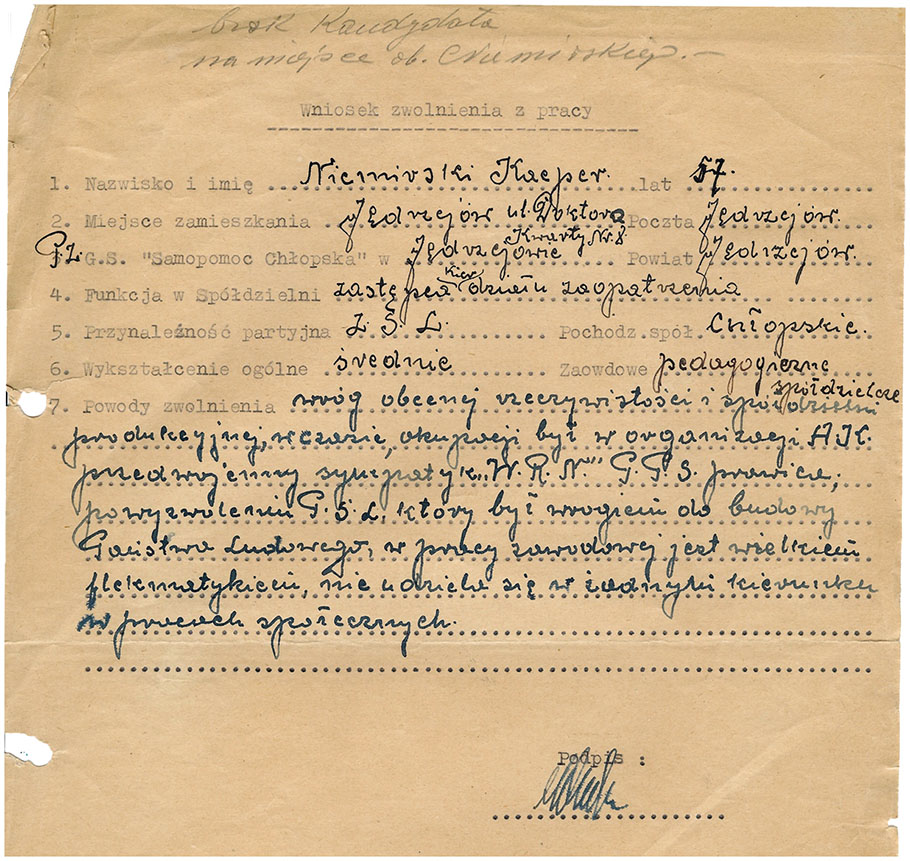 brak Kandydata
na miejsce ob. Niemirskiego.-
Wniosek zwolnienia z pracy
1. Nazwisko i imię Niemirski Kacper. lat 57.
2. Miejsce zamieszkania Jędrzejów ul. Doktora Poczta Jędrzejów.
Kwarty Nr. 8
P.Z. G.S. "Samopomoc Chłopska" w Jędrzejowie Powiat Jędrzejów.
4. Funkcja w Spółdzielni zastępca kier. działu zaopatrzenia
5. Przynależność partyjna Z. S. L. Pochodz.społ Chłopskie.
6. Wykształcenie ogólne średnie Zaowdowe pedagogiczne
spółdzielcze
7. Powody zwolnienia wróg obecnej rzeczywistości i spółdzielni
produkcyjnej, w czasie, okupacji był w organizacji A.K.
przedwojenny sympatyk „W.R.N" P.P.S. prawica,
po wyzwoleniu P.S.L. który był wrogiem do budowy
Państwa Ludowego, w pracy zawodowej jest wielkiem
flekmatykiem, nie udziela się w żadnym kierunku
w pracach społecznych.
Podpis :